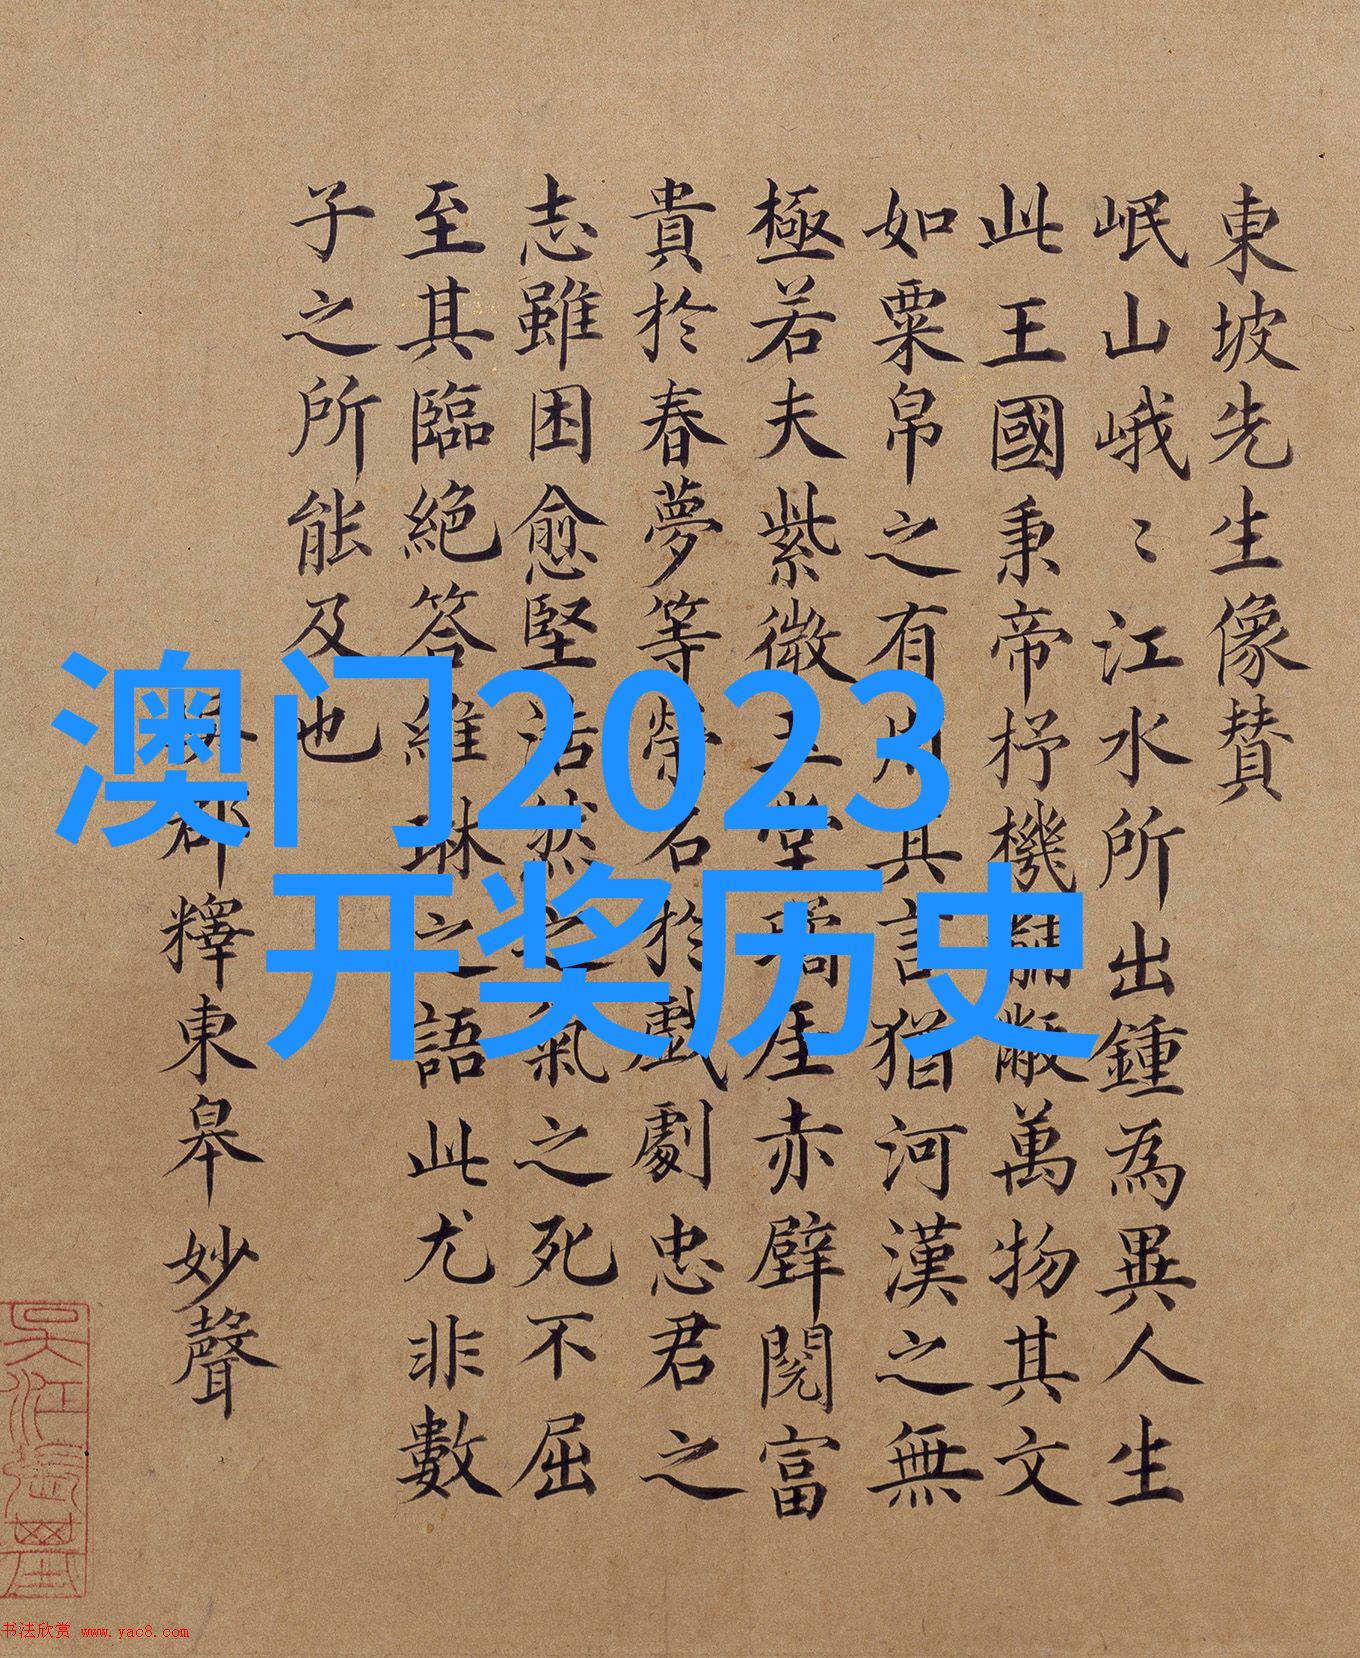 東坡先生像贊
岷山峨〻江水所出鍾為異人生
此王國秉帝杼機黼黻萬物其文
如粟帛之有用其言猶河漢之無
極若夫紫微玉堂瓊厓赤壁閱富
貴於春夢等榮名於戲劇忠君之
志雖困愈堅浩然之氣之死不屈
至其臨絕答維琳之語此尤非數
子之所能及也
郡釋東皋妙聲
澳门2023
开奖历史
书法欣赏 www.yac8.com